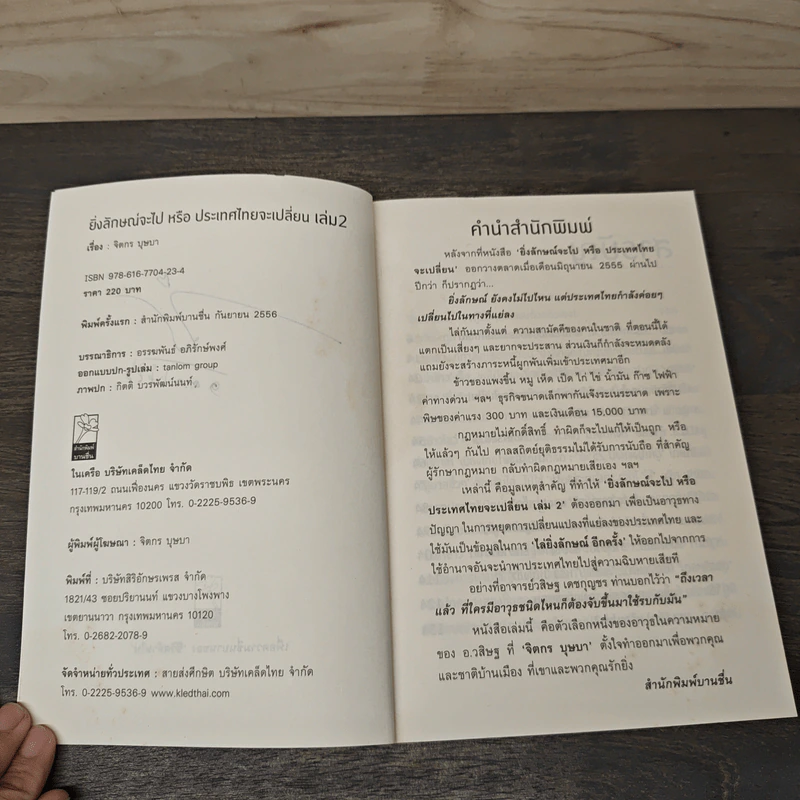 ยิ่งลักษณ์จะไป หรือ ประเทศไทยจะเปลี่ยน เล่ม2
เรื่อง : จิตกร บุษบา
ISBN 978-616-7704-23-4
ราคา 220 บาท
พิมพ์ครั้งแรก : สำนักพิมพ์บานชื่น กันยายน 2556
บรรณาธิการ : อรรฆพันธ์ อภิรักษ์พงศ์
ออกแบบปก-รูปเล่ม : tanlom group
ภาพปก : กิตติ บวรพัฒน์นนท์
สำนักพิมพ์
บานชื่น
ในเครือ บริษัทเคล็ดไทย จำกัด
117-119/2 ถนนเฟื่องนคร แขวงวัดราชบพิธ เขตพระนคร
กรุงเทพมหานคร 10200 โทร. 0-2225-9536-9
ผู้พิมพ์ผู้โฆษณา : จิตกร บุษบา
พิมพ์ที่ : บริษัทสิริอักษรเพรส จำกัด
1821/43 ซอยปรียานนท์ แขวงบางโพงพาง
เขตยานนาวา กรุงเทพมหานคร 10120
โทร. 0-2682-2078-9
จัดจำหน่ายทั่วประเทศ : สายส่งศึกษิต บริษัทเคล็ดไทย จำกัด
โทร. 0-2225-9536-9 www.kledthai.com
คำนำสำนักพิมพ์
หลังจากที่หนังสือ 'ยิ่งลักษณ์จะไป หรือ ประเทศไทย
จะเปลี่ยน' ออกวางตลาดเมื่อเดือนมิถุนายน 2555 ผ่านไป
ปีกว่า ก็ปรากฏว่า...
ยิ่งลักษณ์ ยังคงไม่ไปไหน แต่ประเทศไทยกำลังค่อยๆ
เปลี่ยนไปในทางที่แย่ลง
ไล่กันมาตั้งแต่ ความสามัคคีของคนในชาติ ที่ตอนนี้ได้
แตกเป็นเสี่ยงๆ และยากจะประสาน ส่วนเงินก็กำลังจะหมดคลัง
แถมยังจะสร้างภาระหนี้ผูกพันเพิ่มเข้าประเทศมาอีก
ข้าวของแพงขึ้น หมู เห็ด เป็ด ไก่ ไข่ น้ำมัน ก๊าซ ไฟฟ้า
ค่าทางด่วน ฯลฯ ธุรกิจขนาดเล็กพากันเจ๊งระเนระนาด เพราะ
พิษของค่าแรง 300 บาท และเงินเดือน 15,000 บาท
กฎหมายไม่ศักดิ์สิทธิ์ ทำผิดก็จะไปแก้ให้เป็นถูก หรือ
ให้แล้วๆ กันไป ศาลสถิตย์ยุติธรรมไม่ได้รับการนับถือ ที่สำคัญ
ผู้รักษากฎหมาย กลับทำผิดกฎหมายเสียเอง ฯลฯ
เหล่านี้ คือมูลเหตุสำคัญ ที่ทำให้ 'ยิ่งลักษณ์จะไป หรือ
ประเทศไทยจะเปลี่ยน เล่ม 2' ต้องออกมา เพื่อเป็นอาวุธทาง
ปัญญา ในการหยุดการเปลี่ยนแปลงที่แย่ลงของประเทศไทย และ
ใช้มันเป็นข้อมูลในการ 'ไล่ยิ่งลักษณ์ อีกครั้ง' ให้ออกไปจากการ
ใช้อำนาจอันจะนำพาประเทศไทยไปสู่ความฉิบหายเสียที
อย่างที่อาจารย์วสิษฐ เดชกุญชร ท่านบอกไว้ว่า "ถึงเวลา
แล้ว ที่ใครมีอาวุธชนิดไหนก็ต้องจับขึ้นมาใช้รบกับมัน"
หนังสือเล่มนี้ คือตัวเลือกหนึ่งของอาวุธในความหมาย
ของ อ.วสิษฐ ที่ 'จิตกร บุษบา' ตั้งใจทำออกมาเพื่อพวกคุณ
และชาติบ้านเมือง ที่เขาและพวกคุณรักยิ่ง
สำนักพิมพ์บานชื่น